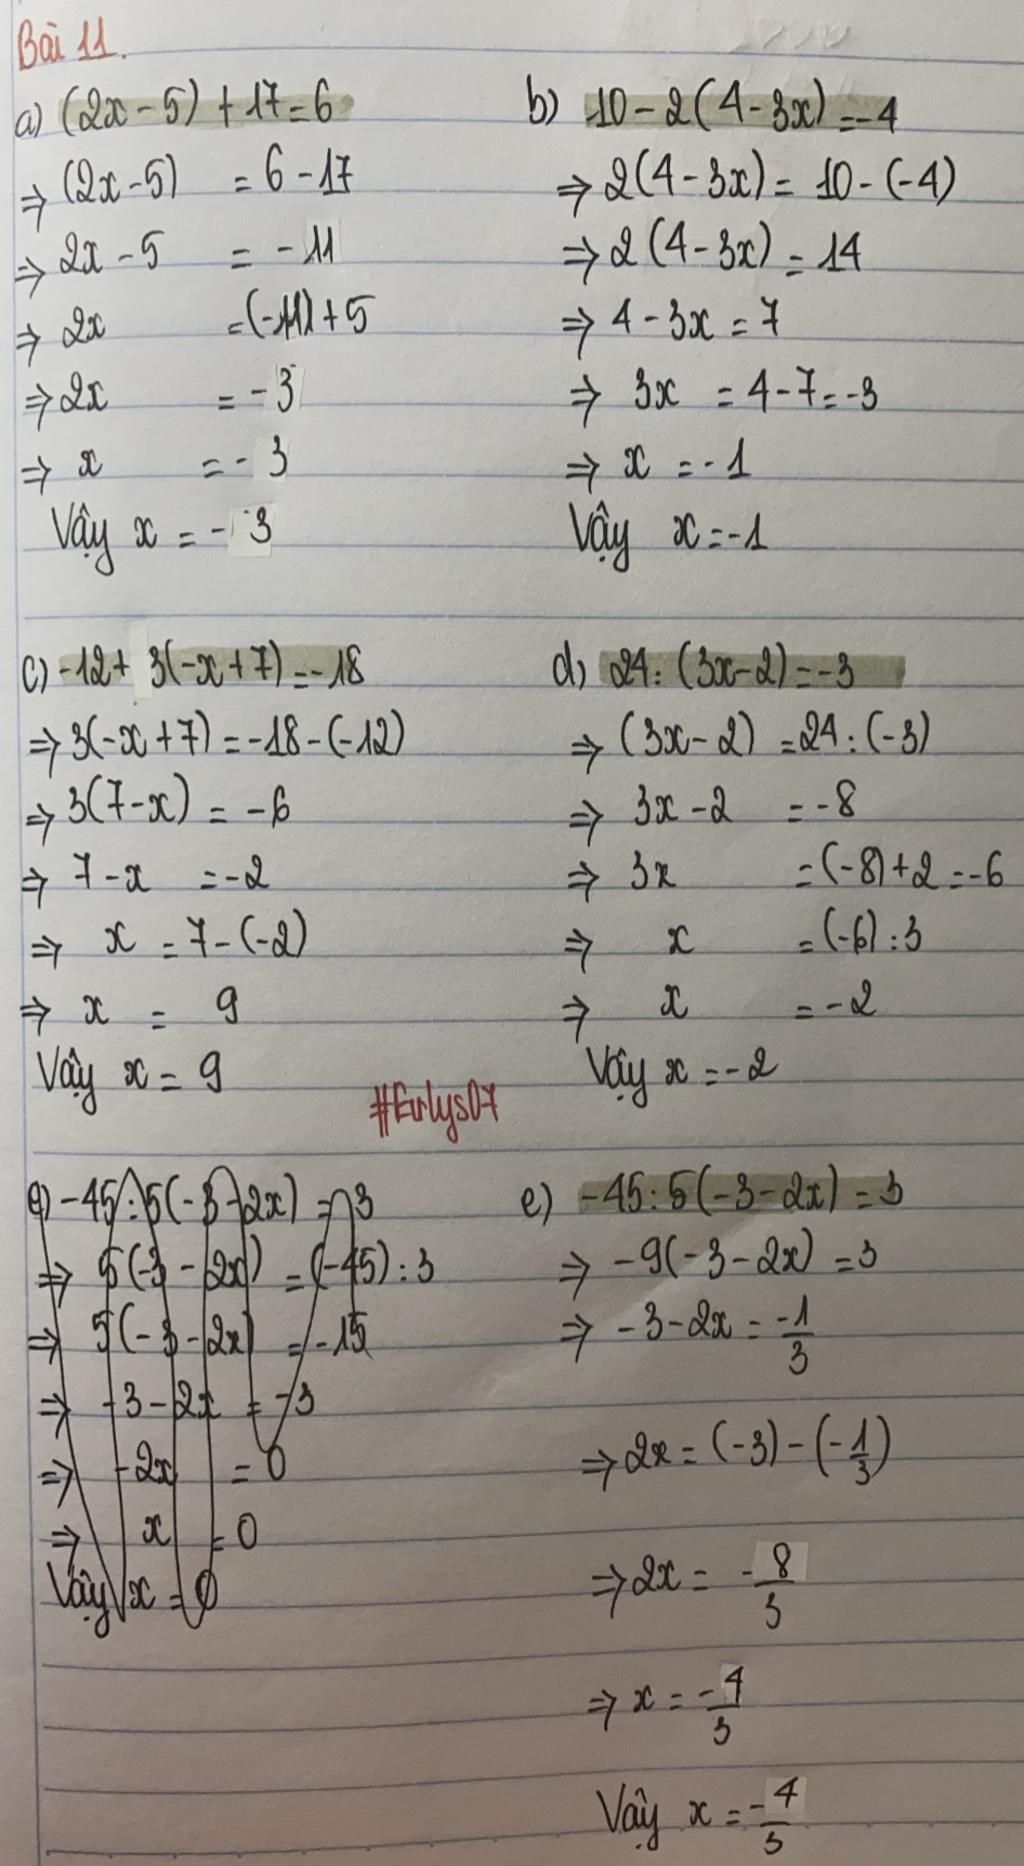 Bài 11.
a) (2x - 5) + 17 = 6
⇒ (2x - 5) = 6 - 17
⇒ 2x - 5 = - 11
⇒ 2x = (-11) + 5
⇒ 2x = - 3
⇒ x = - 3
Vậy x = - 3
b) 10 - 2(4 - 3x) = -4
⇒ 2(4 - 3x) = 10 - (-4)
⇒ 2(4 - 3x) = 14
⇒ 4 - 3x = 7
⇒ 3x = 4 - 7 = -3
⇒ x = - 1
Vậy x = -1
c) -12 + 3(-x + 7) = -18
⇒ 3(-x + 7) = -18 - (-12)
⇒ 3(7 - x) = -6
⇒ 7 - x = -2
⇒ x = 7 - (-2)
⇒ x = 9
Vậy x = 9
d) 24 : (3x - 2) = -3
⇒ (3x - 2) = 24 : (-3)
⇒ 3x - 2 = -8
⇒ 3x = (-8) + 2 = -6
⇒ x = (-6) : 3
⇒ x = -2
Vậy x = -2
#Eirlys07
e) -45 : 5(-3 - 2x) = 3
⇒ 5(-3 - 2x) = (-45) : 3
⇒ 5(-3 - 2x) = -15
⇒ -3 - 2x = -3
⇒ -2x = 0
⇒ x = 0
Vậy x = 0
e) -45 : 5(-3 - 2x) = 3
⇒ -9(-3 - 2x) = 3
⇒ -3 - 2x = -1/3
⇒ 2x = (-3) - (-1/3)
⇒ 2x = -8/3
⇒ x = -4/3
Vậy x = -4/3